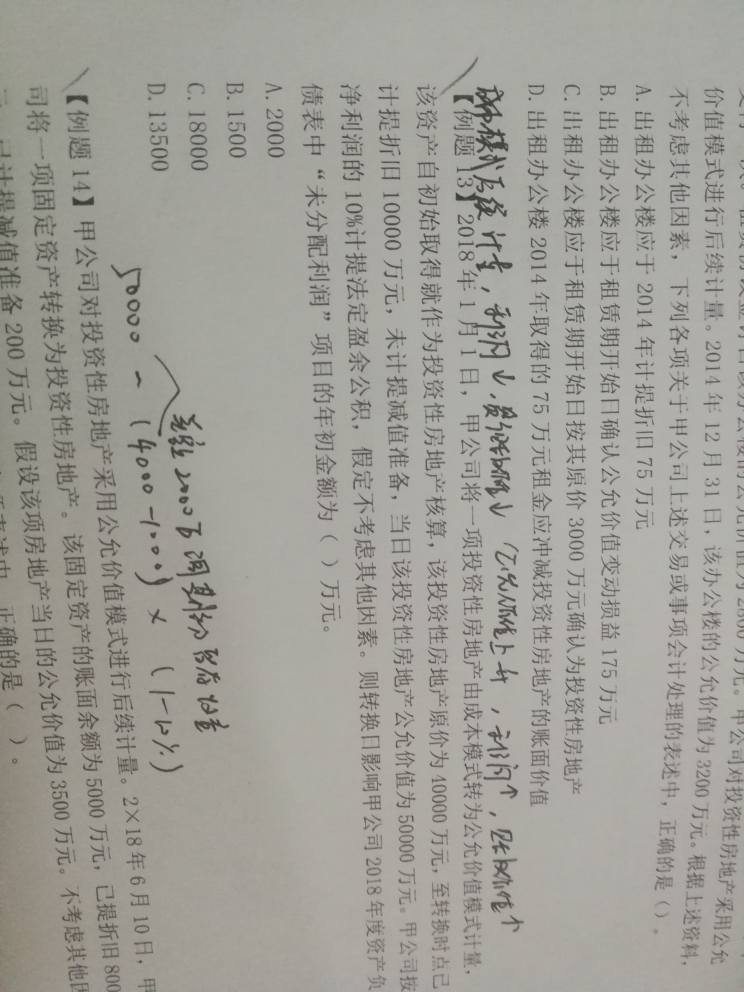 价值模式进行后续计量。2014 年 12 月 31 日，该办公楼的公允价值为 3200 万元。根据上述资料，
不考虑其他因素，下列各项关于甲公司上述交易或事项会计处理的表述中，正确的是（）。
A. 出租办公楼应于 2014 年计提折旧 75 万元
B. 出租办公楼应于租赁期开始日确认公允价值变动损益 175 万元
C. 出租办公楼应于租赁期开始日按其原价 3000 万元确认为投资性房地产
D. 出租办公楼 2014 年取得的 75 万元租金应冲减投资性房地产的账面价值
成本模式后续计量，利润↓，
公允价值上升，利润↑，
【例题 13】2018 年 1 月 1 日，甲公司将一项投资性房地产由成本模式转为公允价值模式计量，
该资产自初始取得就作为投资性房地产核算，该投资性房地产原价为 40000 万元，至转换时点已
计提折旧 10000 万元，未计提减值准备，当日该投资性房地产公允价值为 50000 万元。甲公司按
净利润的 10%计提法定盈余公积，假定不考虑其他因素。则转换日影响甲公司 2018 年度资产负
债表中“未分配利润”项目的年初金额为（ ）万元。
A. 2000
B. 1500
C. 18000
D. 13500
差额 2000万 调期初留存收益
50000 - (4000-1000) × (1-10%)
【例题 14】甲公司对投资性房地产采用公允价值模式进行后续计量。2×18 年 6 月 10 日，甲
司将一项固定资产转换为投资性房地产。该固定资产的账面余额为 5000 万元，已提折旧 800
已计提减值准备 200 万元。假设该项房地产当日的公允价值为 3500 万元。不考虑其他因
正确的是（ ）。